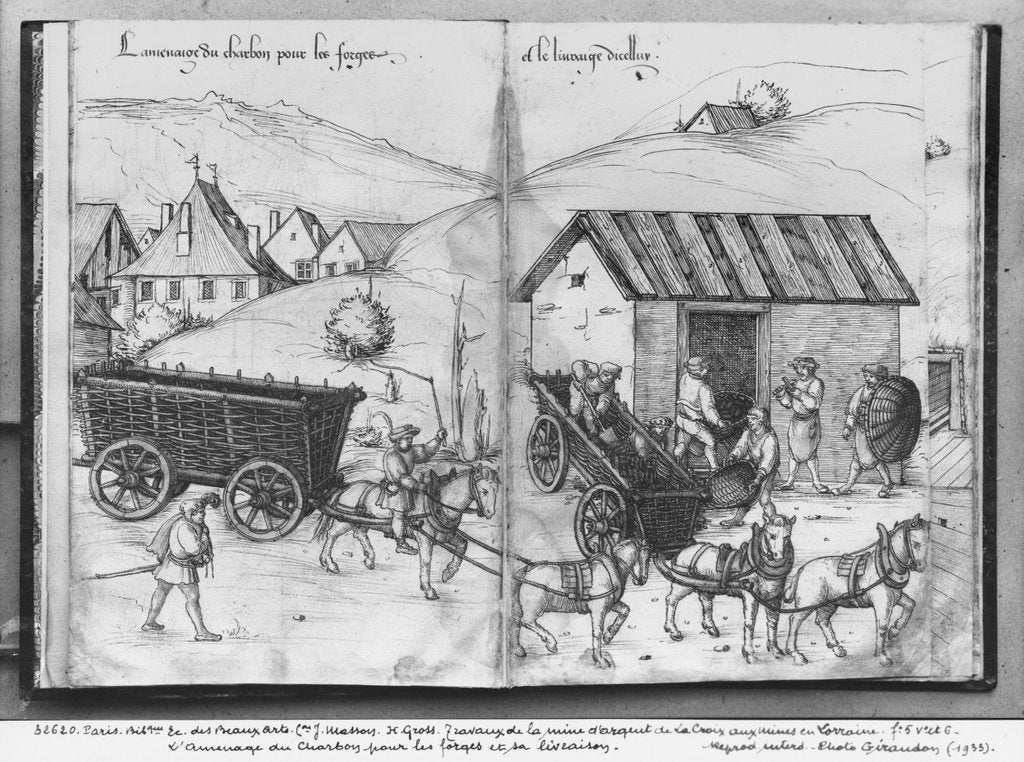 Lamenaige du charbon pour les forges
et le livraige dicelluy .
32620. Paris. Bibque Ec. des Beaux arts. (on J. Masson. H. Gross. Travaux de la mine d'argent de La Croix aux mines en Lorraine. fo 5 vo et 6 -
L'Amenage du Charbon pour les forges et sa livraison. Reprod inters - Photo Giraudon (-1933).